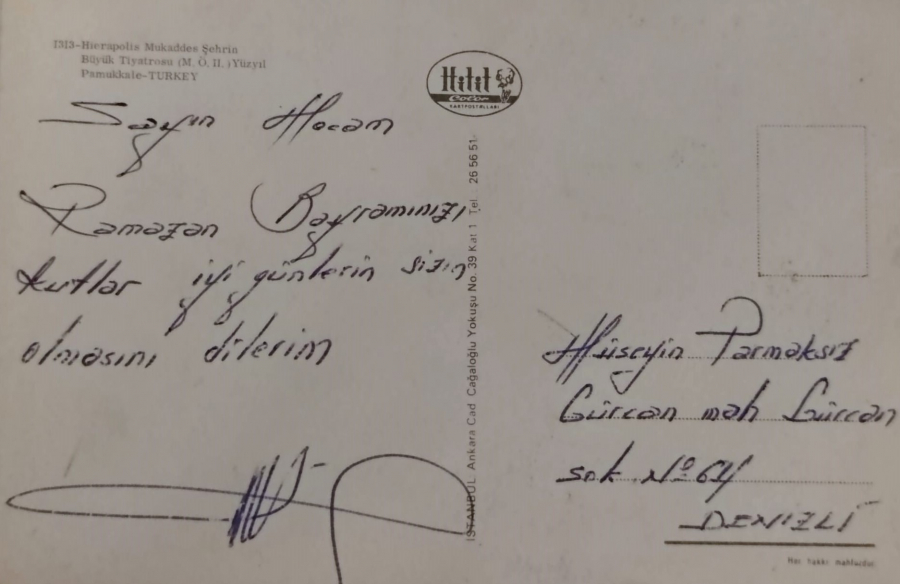 1313-Hierapolis Mukaddes Şehrin
Büyük Tiyatrosu (M. Ö. II. )Yüzyıl
Pamukkale-TURKEY
Hitit
Color
KARTPOSTALLARI
Sayın Hocam
Ramazan Bayramınızı
kutlar iyi günlerin sizin
olmasını dilerim
İSTANBUL Ankara Cad Cağaloğlu Yokuşu No. 39 Kat 1 Tel. 26 56 51
Hüseyin Parmaksız
Gürcan mah Gürcan
sok No 64
DENİZLİ
Her hakkı mahfuzdur